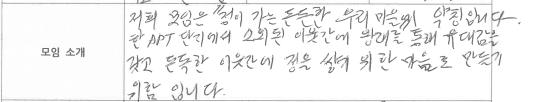 모임 소개
저희 모임은 정이 가는 든든한 우리 마을 입니다.
한 APT 단지에서 소외된 이웃간에 통해 유대감을
갖고 돈독한 이웃간에 정을 쌓기 위한 마음로 만들기
위함 입니다.